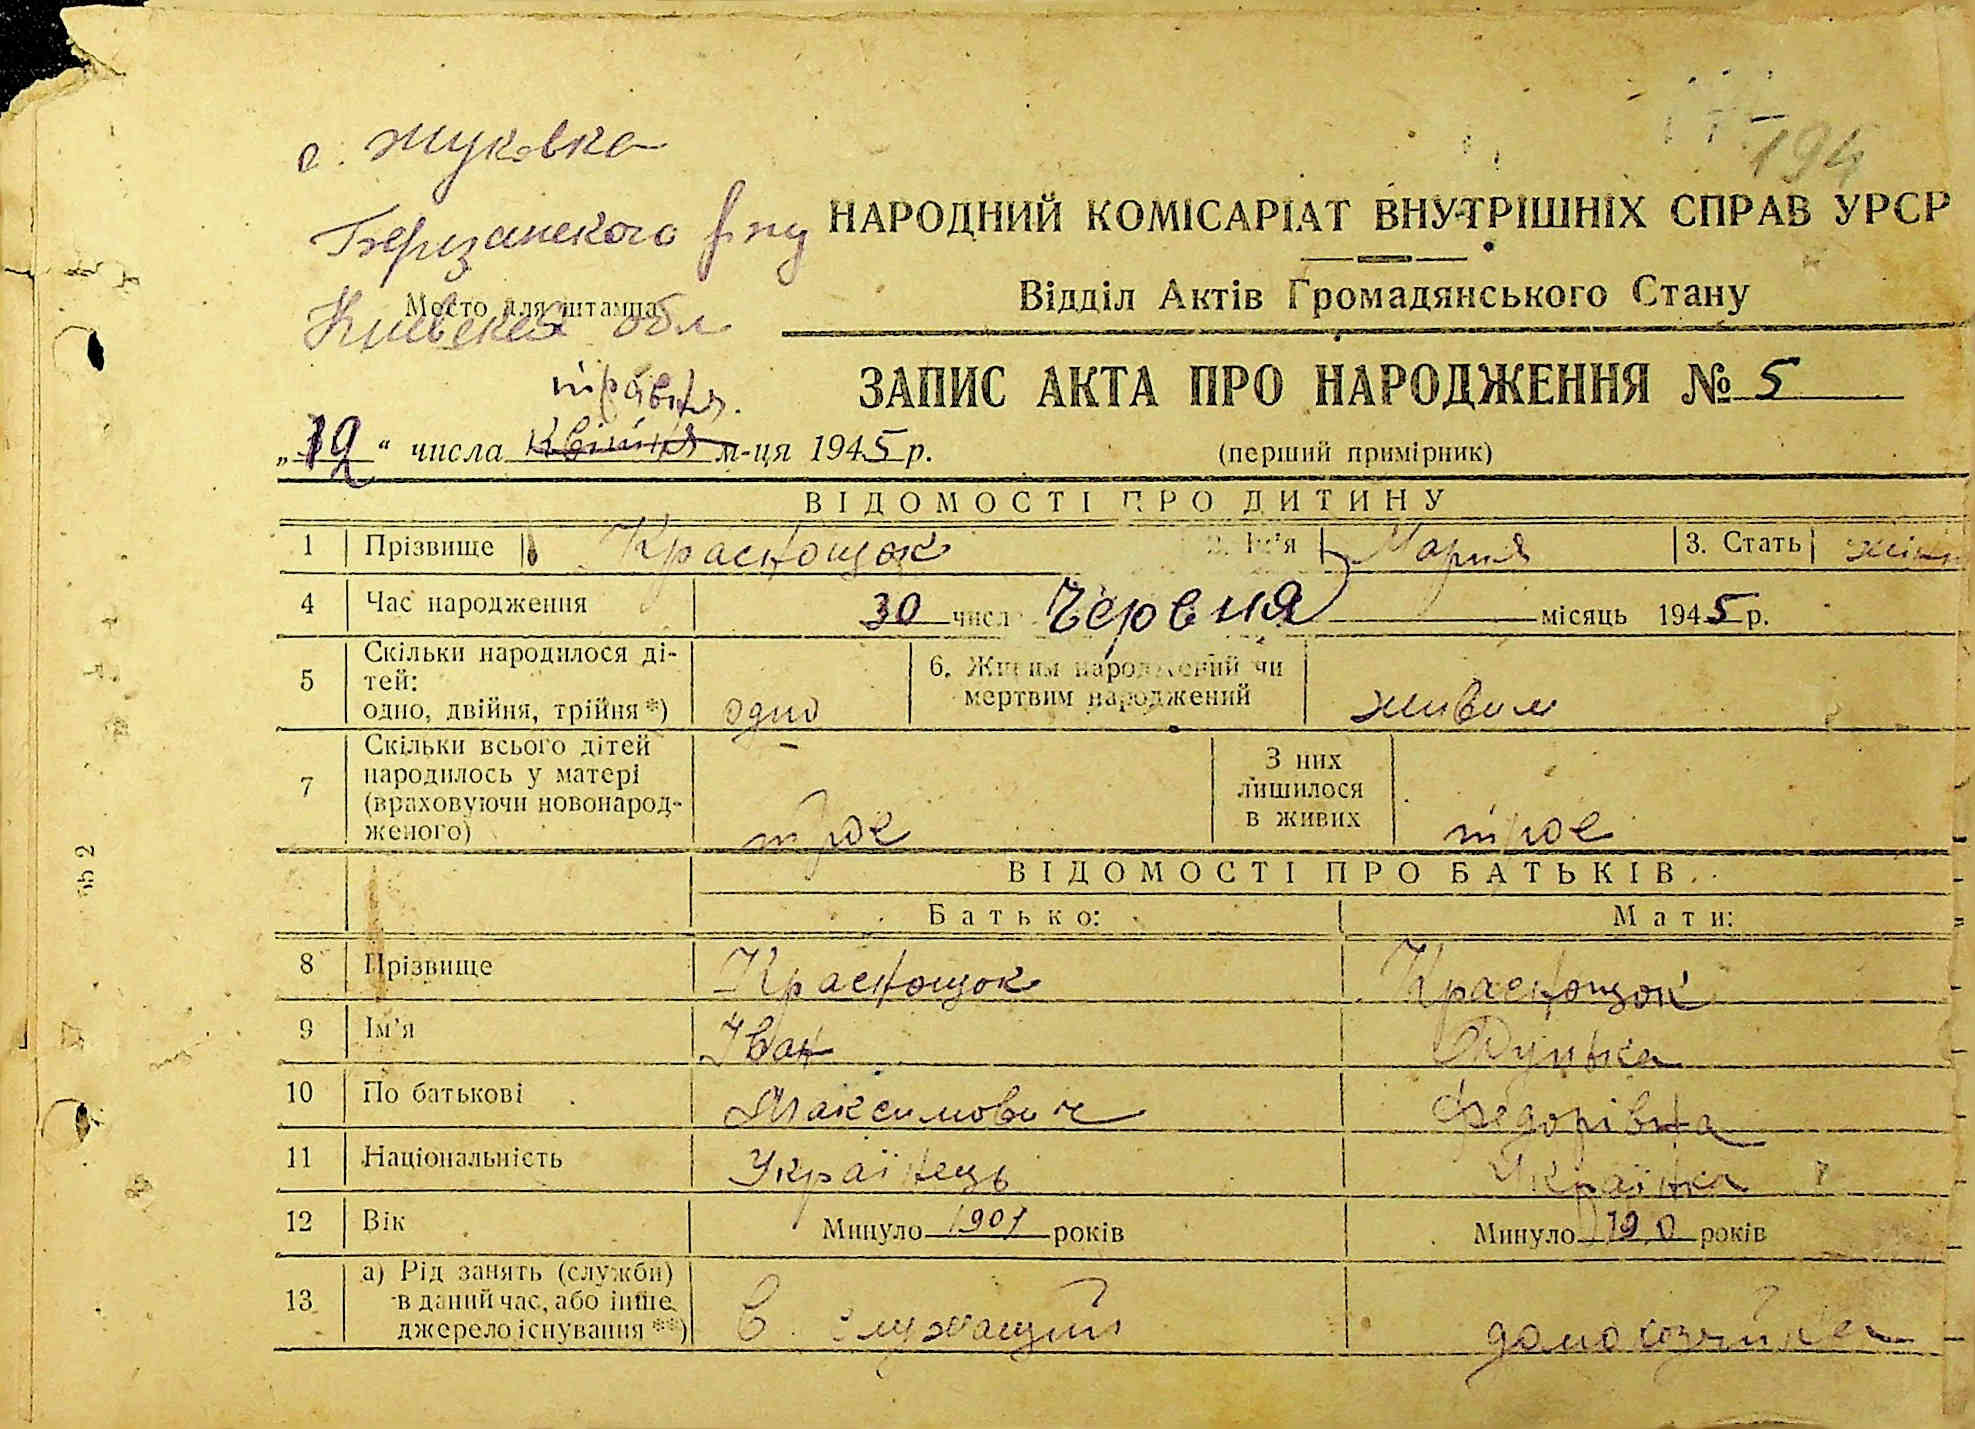 с. Жуковка
194
Березанского р-ну
Киевской обл
Место для штампа
НАРОДНИЙ КОМІСАРІАТ ВНУТРІШНІХ СПРАВ УРСР
Відділ Актів Громадянського Стану
ЗАПИС АКТА ПРО НАРОДЖЕННЯ № 5
(перший примірник)
травня.
„19“ числа квітня м-ця 1945 р.
ВІДОМОСТІ ПРО ДИТИНУ
1 Прізвище Краснощок 2. Ім'я Мария 3. Стать жіноч
4 Час народження 30 числ червня місяць 1945 р.
5 Скільки народилося ді-
тей:
одно, двійня, трійня*) одно
6. Живим народжений чи
мертвим народжений живим
7 Скільки всього дітей
народилось у матері
(враховуючи новонарод-
женого) троє
З них
лишилося
в живих троє
ВІДОМОСТІ ПРО БАТЬКІВ
Батько: Мати:
8 Прізвище Краснощок Краснощок
9 Ім'я Іван
10 По батькові Максимович Федорівна
11 Національність Українець Українка
12 Вік Минуло 1901 років Минуло років
13 а) Рід занять (служби)
в даний час, або інше
джерело існування **) служащий домохозяйка
55 2